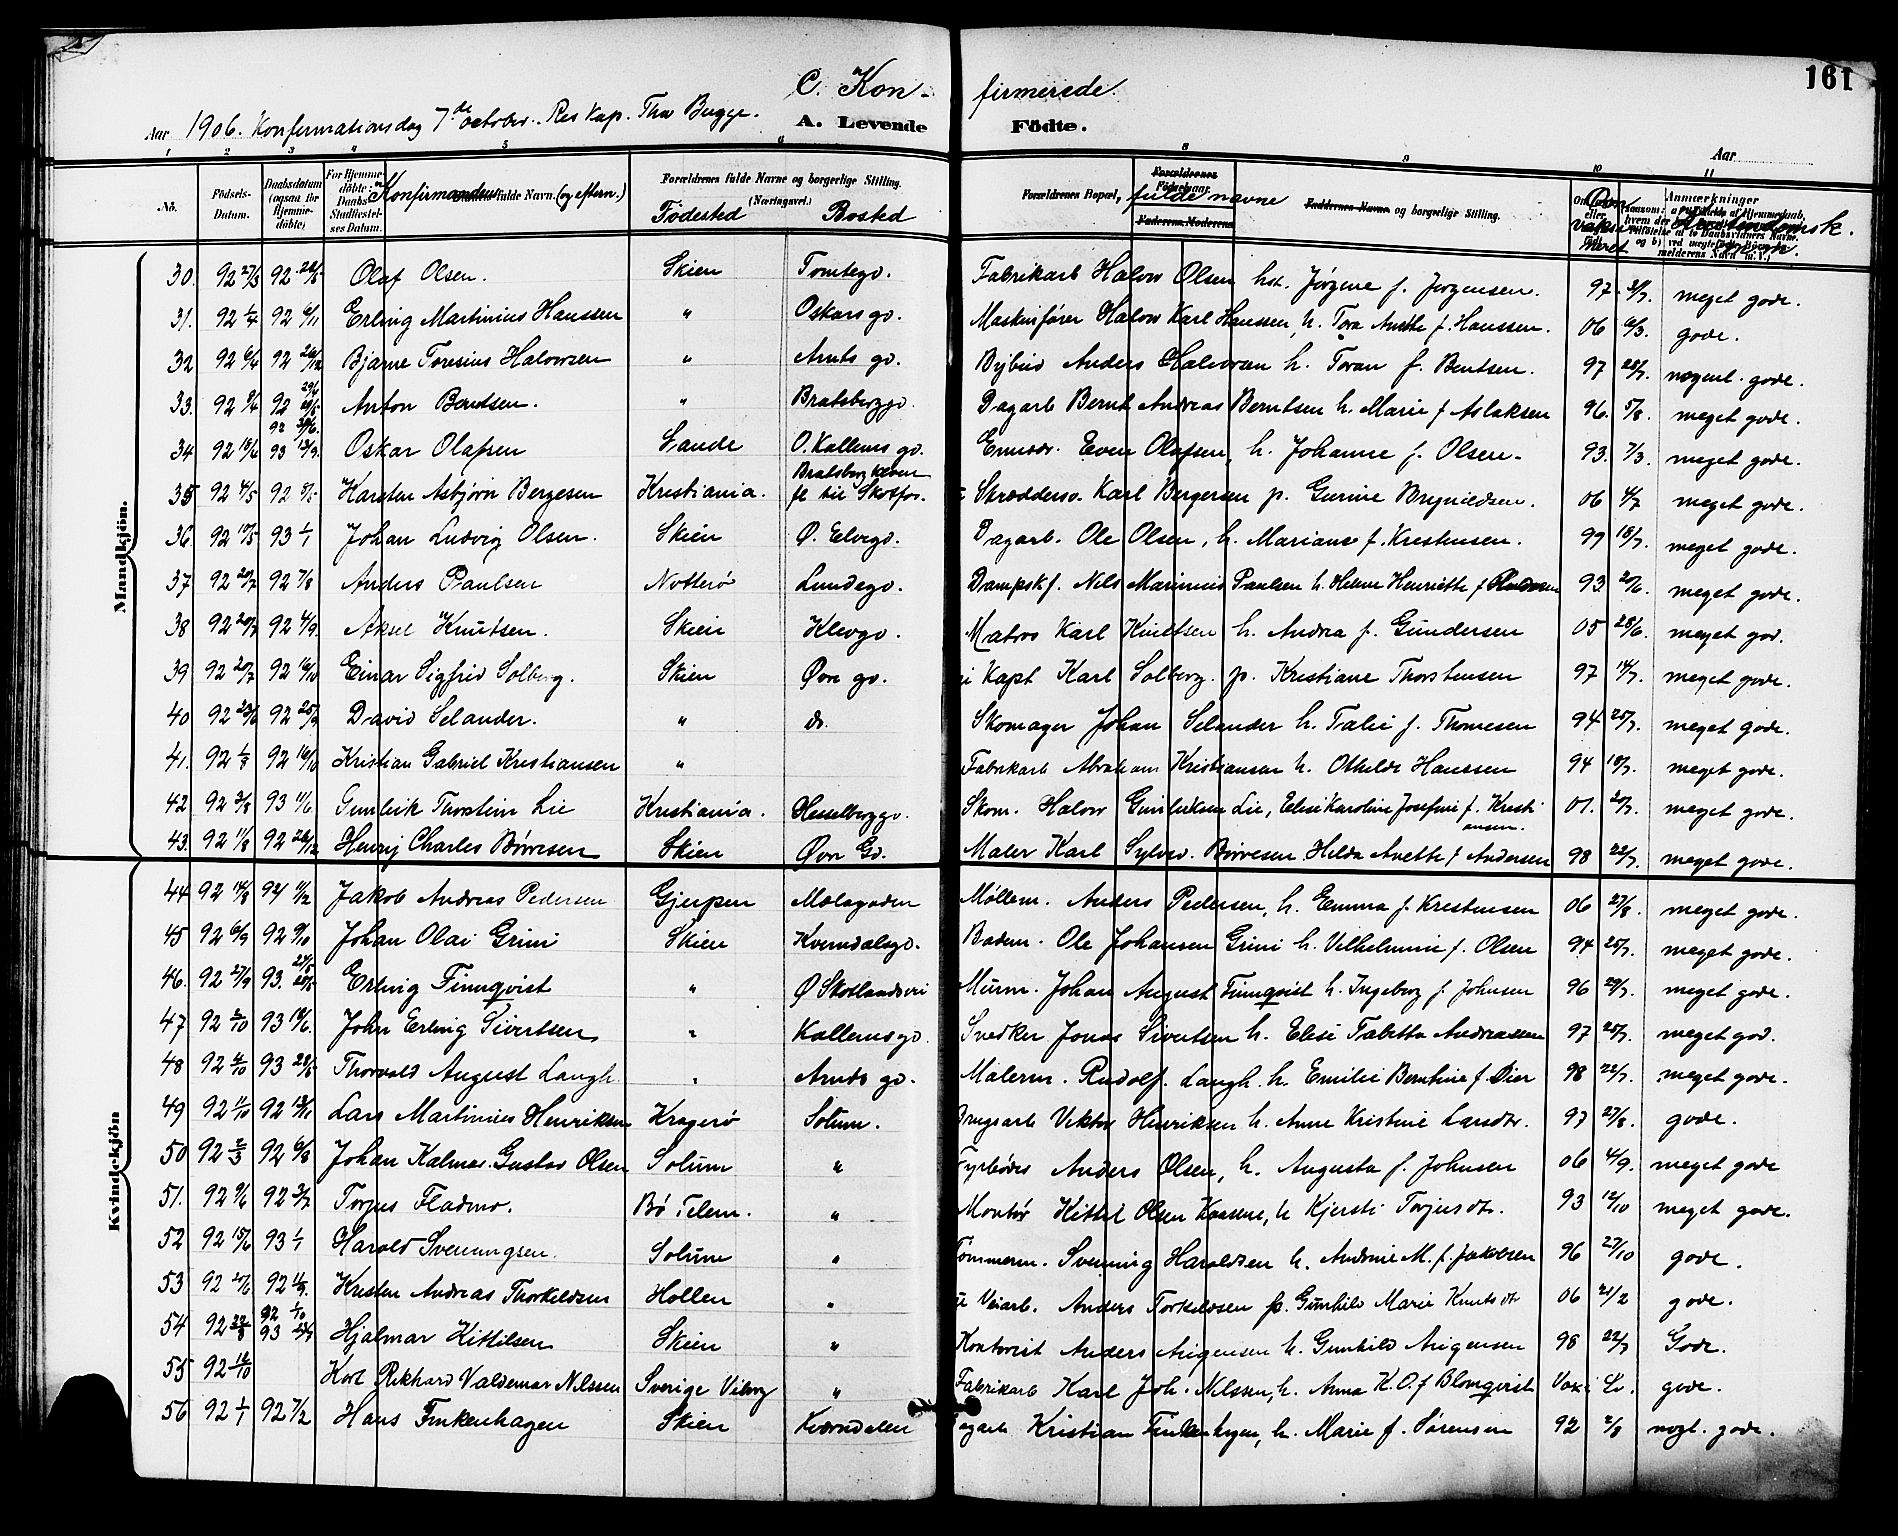 161
C. Kon- firmerede
Aar 1906. Konfirmationsdag 7de october. Res Kap. Thv Bugge.
A. Levende Födte.
Aar
1 2 3 4 5 6 8 9 10 11
No. Födsels-Datum. Daabsdatum (ogsaa for Hjemmedöbte) For Hjemmedöbte: Daabs Stadfæstelses Datum. Konfirmandens fulde Navn. (og eftern.) Forældrenes fulde Navne og borgerlige Stilling. (Næringsvei.) Födested Bosted Forældrenes Bopæl, fulde navne Forældrenes Födselsaar. Faderens. Moderens Faddernes Navne og borgerlige Stilling. Anmærkninger
Mandkjön.
30. 92 27/3 92 Olaf Olsen. Skien Tomtegd. Fabrikarb Halvor Olsen hst. Jørgine f. Jørgensen. 97 meget gode.
31. 92 1/4 92 6/11 Erling Martinius Hanssen " Oskars gd. Maskinfører Halvor Karl Hanssen, h. Tora Anethe f. Hanssen. 06 6/3. gode.
32 92 6/4 92 26/12 Bjarne Toresius Halvorsen " Arnts gd. Bybud Anders Halvorsen h. Toran f. Bentsen. 97 28/7. nogenl. gode.
33. 92 9/4 92 Anton Berntsen. " Bratsberggd. Dagarb Bernt Andreas Berntsen h. Marie f Aslaksen 96. 5/8. meget gode.
34 92 18/4 93 Oskar Olafsen Sande O. Kallems gd. Even Olafsen, h. Johanne f. Olsen. 93. 7/3. meget gode.
35 92 4/5 92 Karsten Asbjørn Bergesen Kristiania. Bratsberg kleven fl til Skotfos. Skræddersv. Karl Bergersen p. Gurine Brynildsen. 06 4/7 meget gode.
36 92 10/5 93 1/1 Johan Ludvig Olsen. Skien Ø. Elvegd. Dagarb. Ole Olsen, h. Mariane f. Kristensen. 99 18/7. meget gode.
37 92 20/7 92 7/8 Anders Paulsen Notterø Lundegd. Dampskf. Nils Marinius Paulsen h. Helene Henriette f 93 20/6. meget gode.
38 92 20/7 92 4/9. Aksel Knutsen. Skien Klevgd. Matros Karl Knutsen h. Andrea f. Gundersen 05 28/6. meget god.
39 92 20/7 92 16/10 Einar Sigfrid Solberg. Skien Øvre gd. Kapt Karl Solberg. p. Kristiane Thorstensen 97 14/7. meget gode.
40 92 92 25/9 David Selander. " do. Skomager Johan Selander h. Talie f. Thomesen 94 25/7. meget gode.
41. 92 1/8 92 16/10 Kristian Gabriel Kristiansen " Fabrikarb Abraham Kristiansen h. Othilde Hanssen 94 18/7. meget gode.
42 92 3/8 93 11/6 Gunleik Thorstein Lie Kristiania. Hesselberggd. Skom. Halvor Gunleiksen Lie, Elise Karoline Josefine f. Kristiansen. 01. 20/7. meget gode.
43. 92 11/8 92 26/12 Henry Charles Børresen Skien Øvre Gd. Maler Karl Sylved. Børresen Hilda Anette f Andersen 98 22/7. meget gode.
Kvindekjön
44 92 14/8 94 11/2 Jakob Andreas Pedersen Gjerpen Mælagaden Møllem. Anders Pedersen, h. Emma f. Kristensen 06 27/8. meget gode.
45 92 6/9 92 9/10 Johan Olai Grini Skien Kverndalsgd. Badem. Ole Johansen Grini h. Vilhelmine f. Olsen 94 25/7. meget gode.
46. 92 27/9 93. Erling Finnqvist " Ø Skotlandsvei Murm. Johan August Finnqvist h. Ingeborg f. Johnsen 96 29/7. meget gode.
47 92 2/10 93 18/6. John Erling Sivertsen " Kallemsgd. Snedker Jonas Siversen h. Elise Tabitha Andreassen 97 28/7. meget god.
48 92 4/10 93 28/5 Thorvald August Langh. " Arnds gd. Malerm. Rudolf Langh. h. Emilie Berntine f. Dier 98 22/7. meget gode.
49 92 11/10 92 13/11 Lars Martinius Henriksen Kragerø Solum. Brugsarb Viktor Henriksen h. Anne Kristine Larsdtr. 97 27/8. gode.
50 92 2/3 92 6/8 Johan Kalmar Gustav Olsen Solum " Fyrbøder Anders Olsen, h. Augusta f. Johnsen 06 4/9. meget gode
51. 92 9/6 92 3/7 Torjus Fladmo. Bø Telem. " Montør Kittel Olsen Kaasene, h Kjersti Torjusdtr. 93 12/10 meget gode.
52 92 15/6 93 1/1 Harald Sveinungsen. Solum " Tømmerm. Svenning Haroldsen h. Andrine M. f. Jakobsen 96 27/10 gode.
53 92 92 Kristen Andreas Thorkildsen Hollen " Veiarb. Anders Torkildsen p. Gunhild Marie Knutsdtr 06 21/2 gode.
54 92 22/8 92 1/10 93 Hjalmar Kittilsen Skien " Kontorist Anders Arigensen h. Gunhild Arigensen 98 22/7 Gode.
55 92 12/10 Karl Rikhard Valdemar Nilssen Sverige Viborg " Fabrikarb Karl Joh. Nilssen, h. Anna K. O. f Blomqvist gode.
56 92 1/1 92 7/2 Hans Finkenhagen Skien Kverndalen Dagarb Kristian Finkenhagen, h. Marie f. Sørensen 92 2/8 nogl. gode.